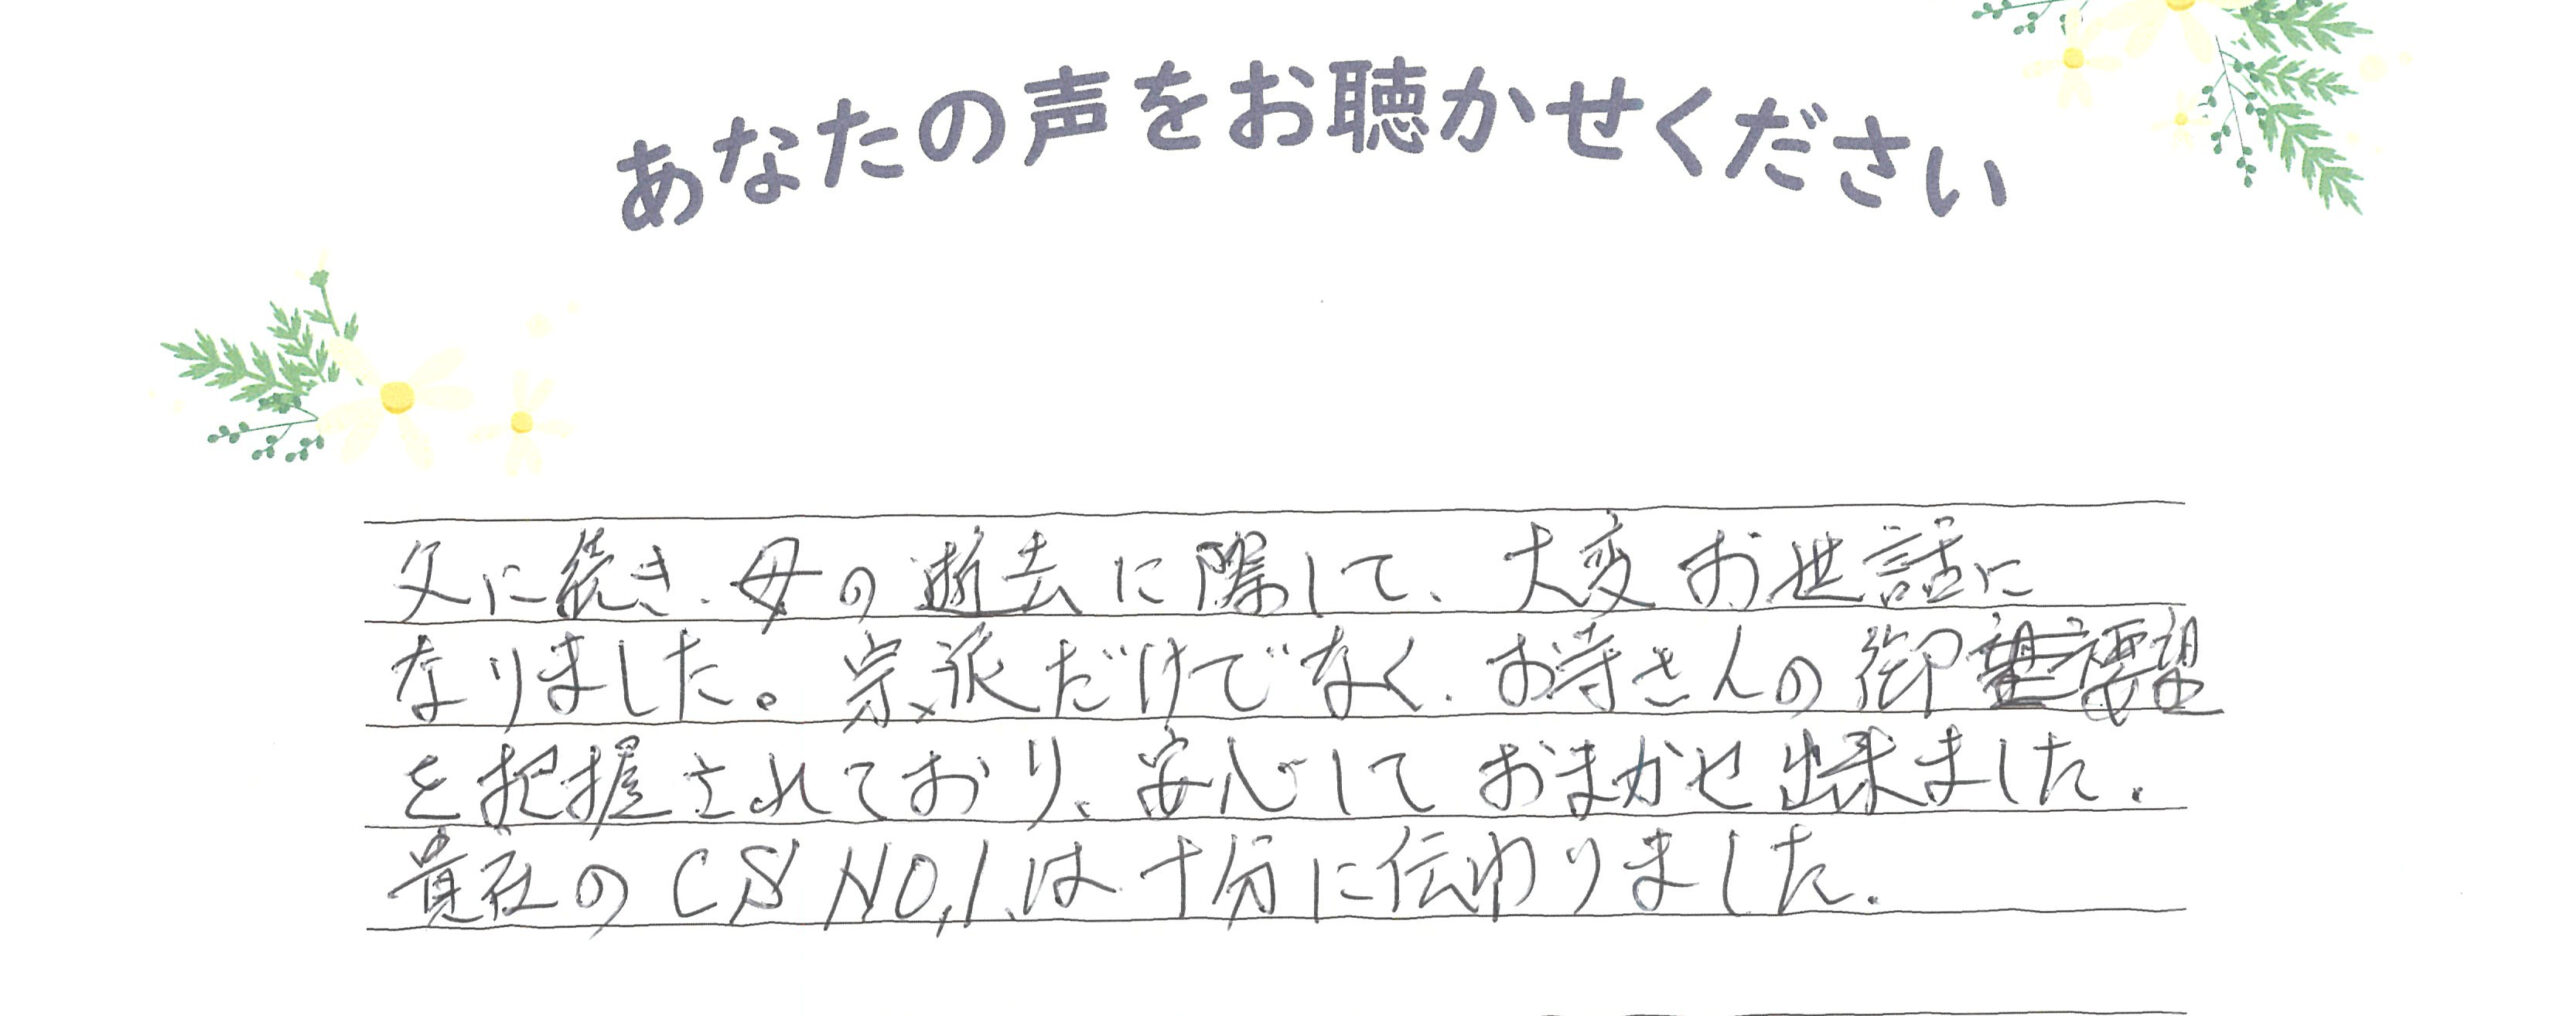 あなたの声をお聴かせください
父に続き、母の逝去に際して、大変お世話に
なりました。宗派だけでなく、お寺さんの御要望
を把握されており、安心しておまかせ出来ました。
貴社のCS NO,1.は十分に伝わりました.